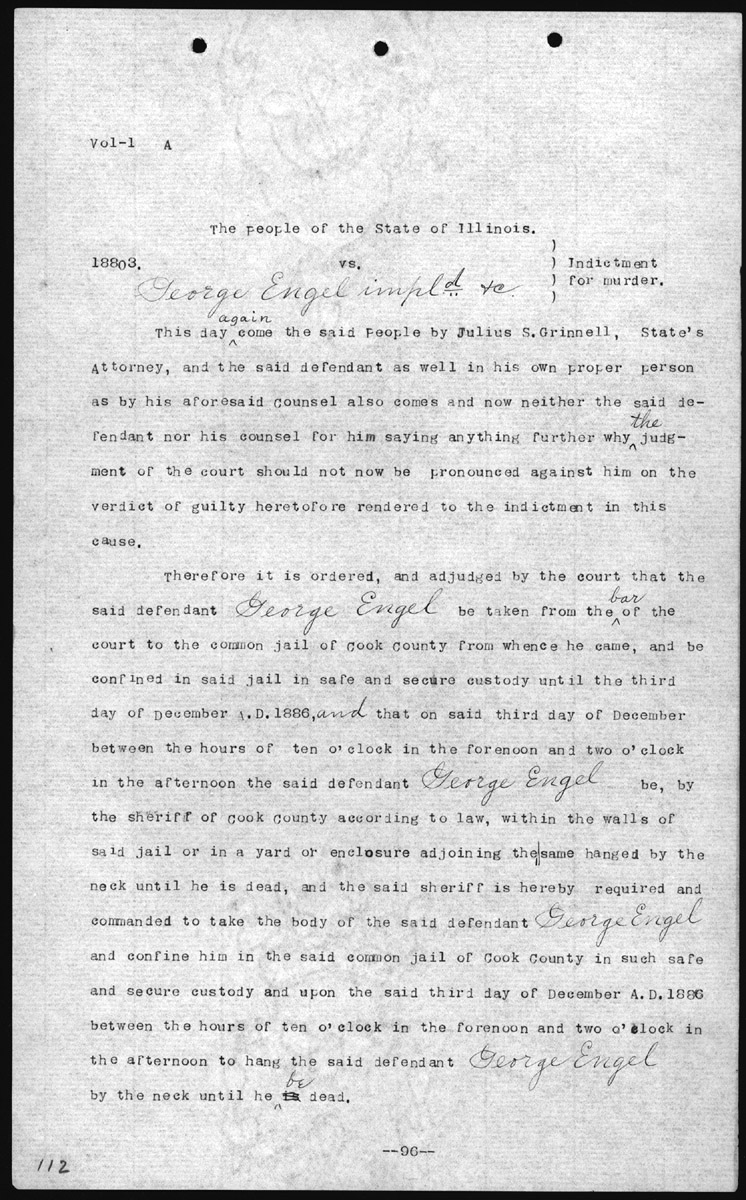 Vol-1 A
The People of the State of Illinois.
18803. vs. ) Indictment
) for murder.
George Engel impld &c.
again
This day ^ come the said People by Julius S. Grinnell, State's
Attorney, and the said defendant as well in his own proper person
as by his aforesaid Counsel also comes and now neither the said de-
the
fendant nor his counsel for him saying anything further why ^ judg-
ment of the court should not now be pronounced against him on the
verdict of guilty heretofore rendered to the indictment in this
cause.
Therefore it is ordered, and adjudged by the court that the
bar
said defendant George Engel be taken from the ^ of the
court to the common jail of Cook County from whence he came, and be
confined in said jail in safe and secure custody until the third
day of December A.D. 1886, and that on said third day of December
between the hours of ten o'clock in the forenoon and two o'clock
in the afternoon the said defendant George Engel be, by
the sheriff of Cook County according to law, within the walls of
said jail or in a yard or enclosure adjoining the same hanged by the
neck until he is dead, and the said sheriff is hereby required and
commanded to take the body of the said defendant George Engel
and confine him in the said common jail of Cook County in such safe
and secure custody and upon the said third day of December A.D. 1886
between the hours of ten o'clock in the forenoon and two o'clock in
the afternoon to hang the said defendant George Engel
be
by the neck until he ^ is dead.
--96--
112